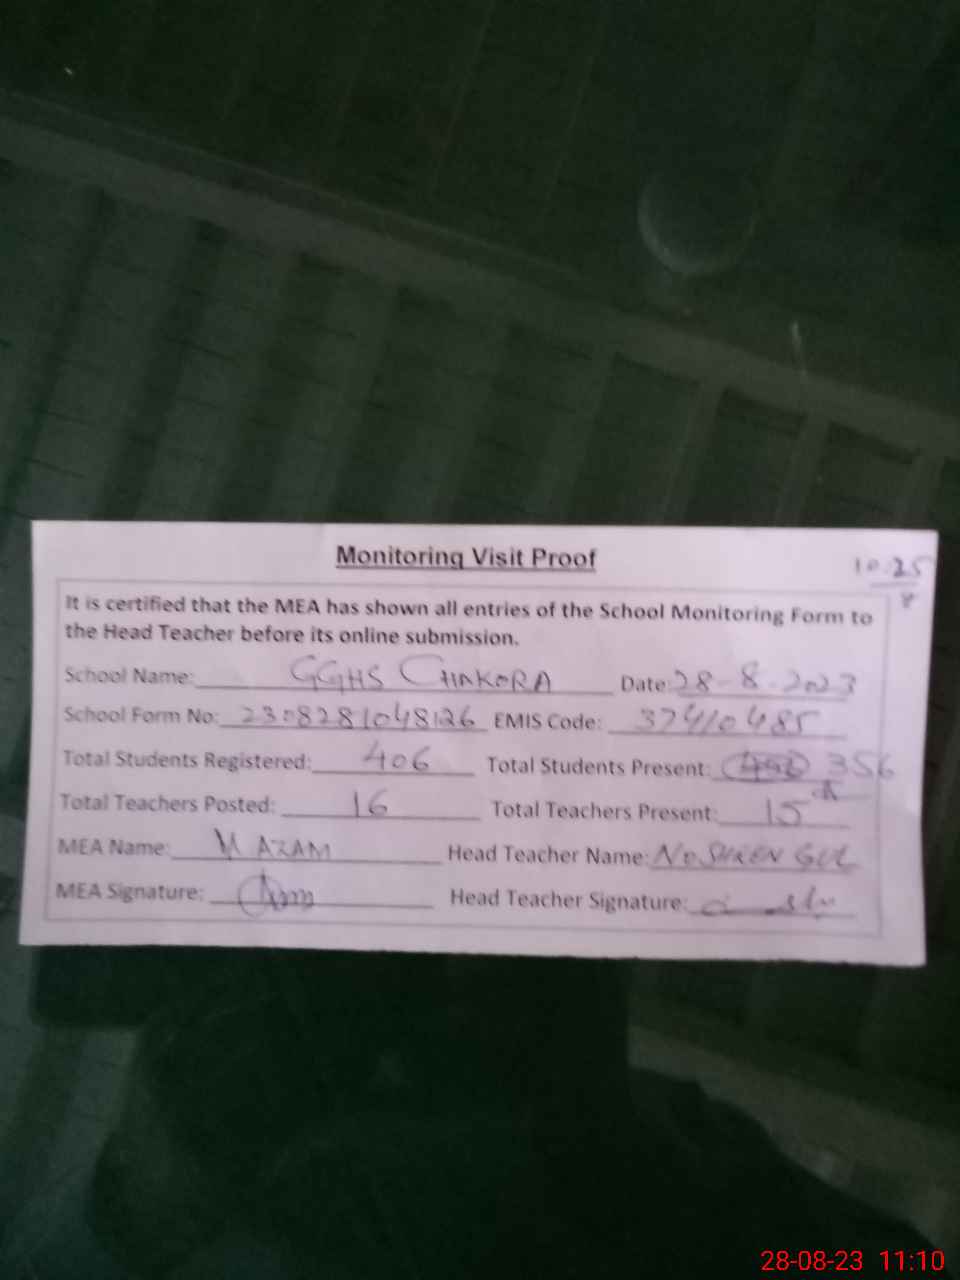 Monitoring Visit Proof
10.25
8
It is certified that the MEA has shown all entries of the School Monitoring Form to
the Head Teacher before its online submission.
School Name: GGHS CHAKORA Date: 28-8-2023
School Form No: 2308281048126 EMIS Code: 37410485
Total Students Registered: 406 Total Students Present: 356
Total Teachers Posted: 16 Total Teachers Present: 15
MEA Name: M AZAM Head Teacher Name: NOSHEEN GUL
MEA Signature: Head Teacher Signature:
28-08-23 11:10